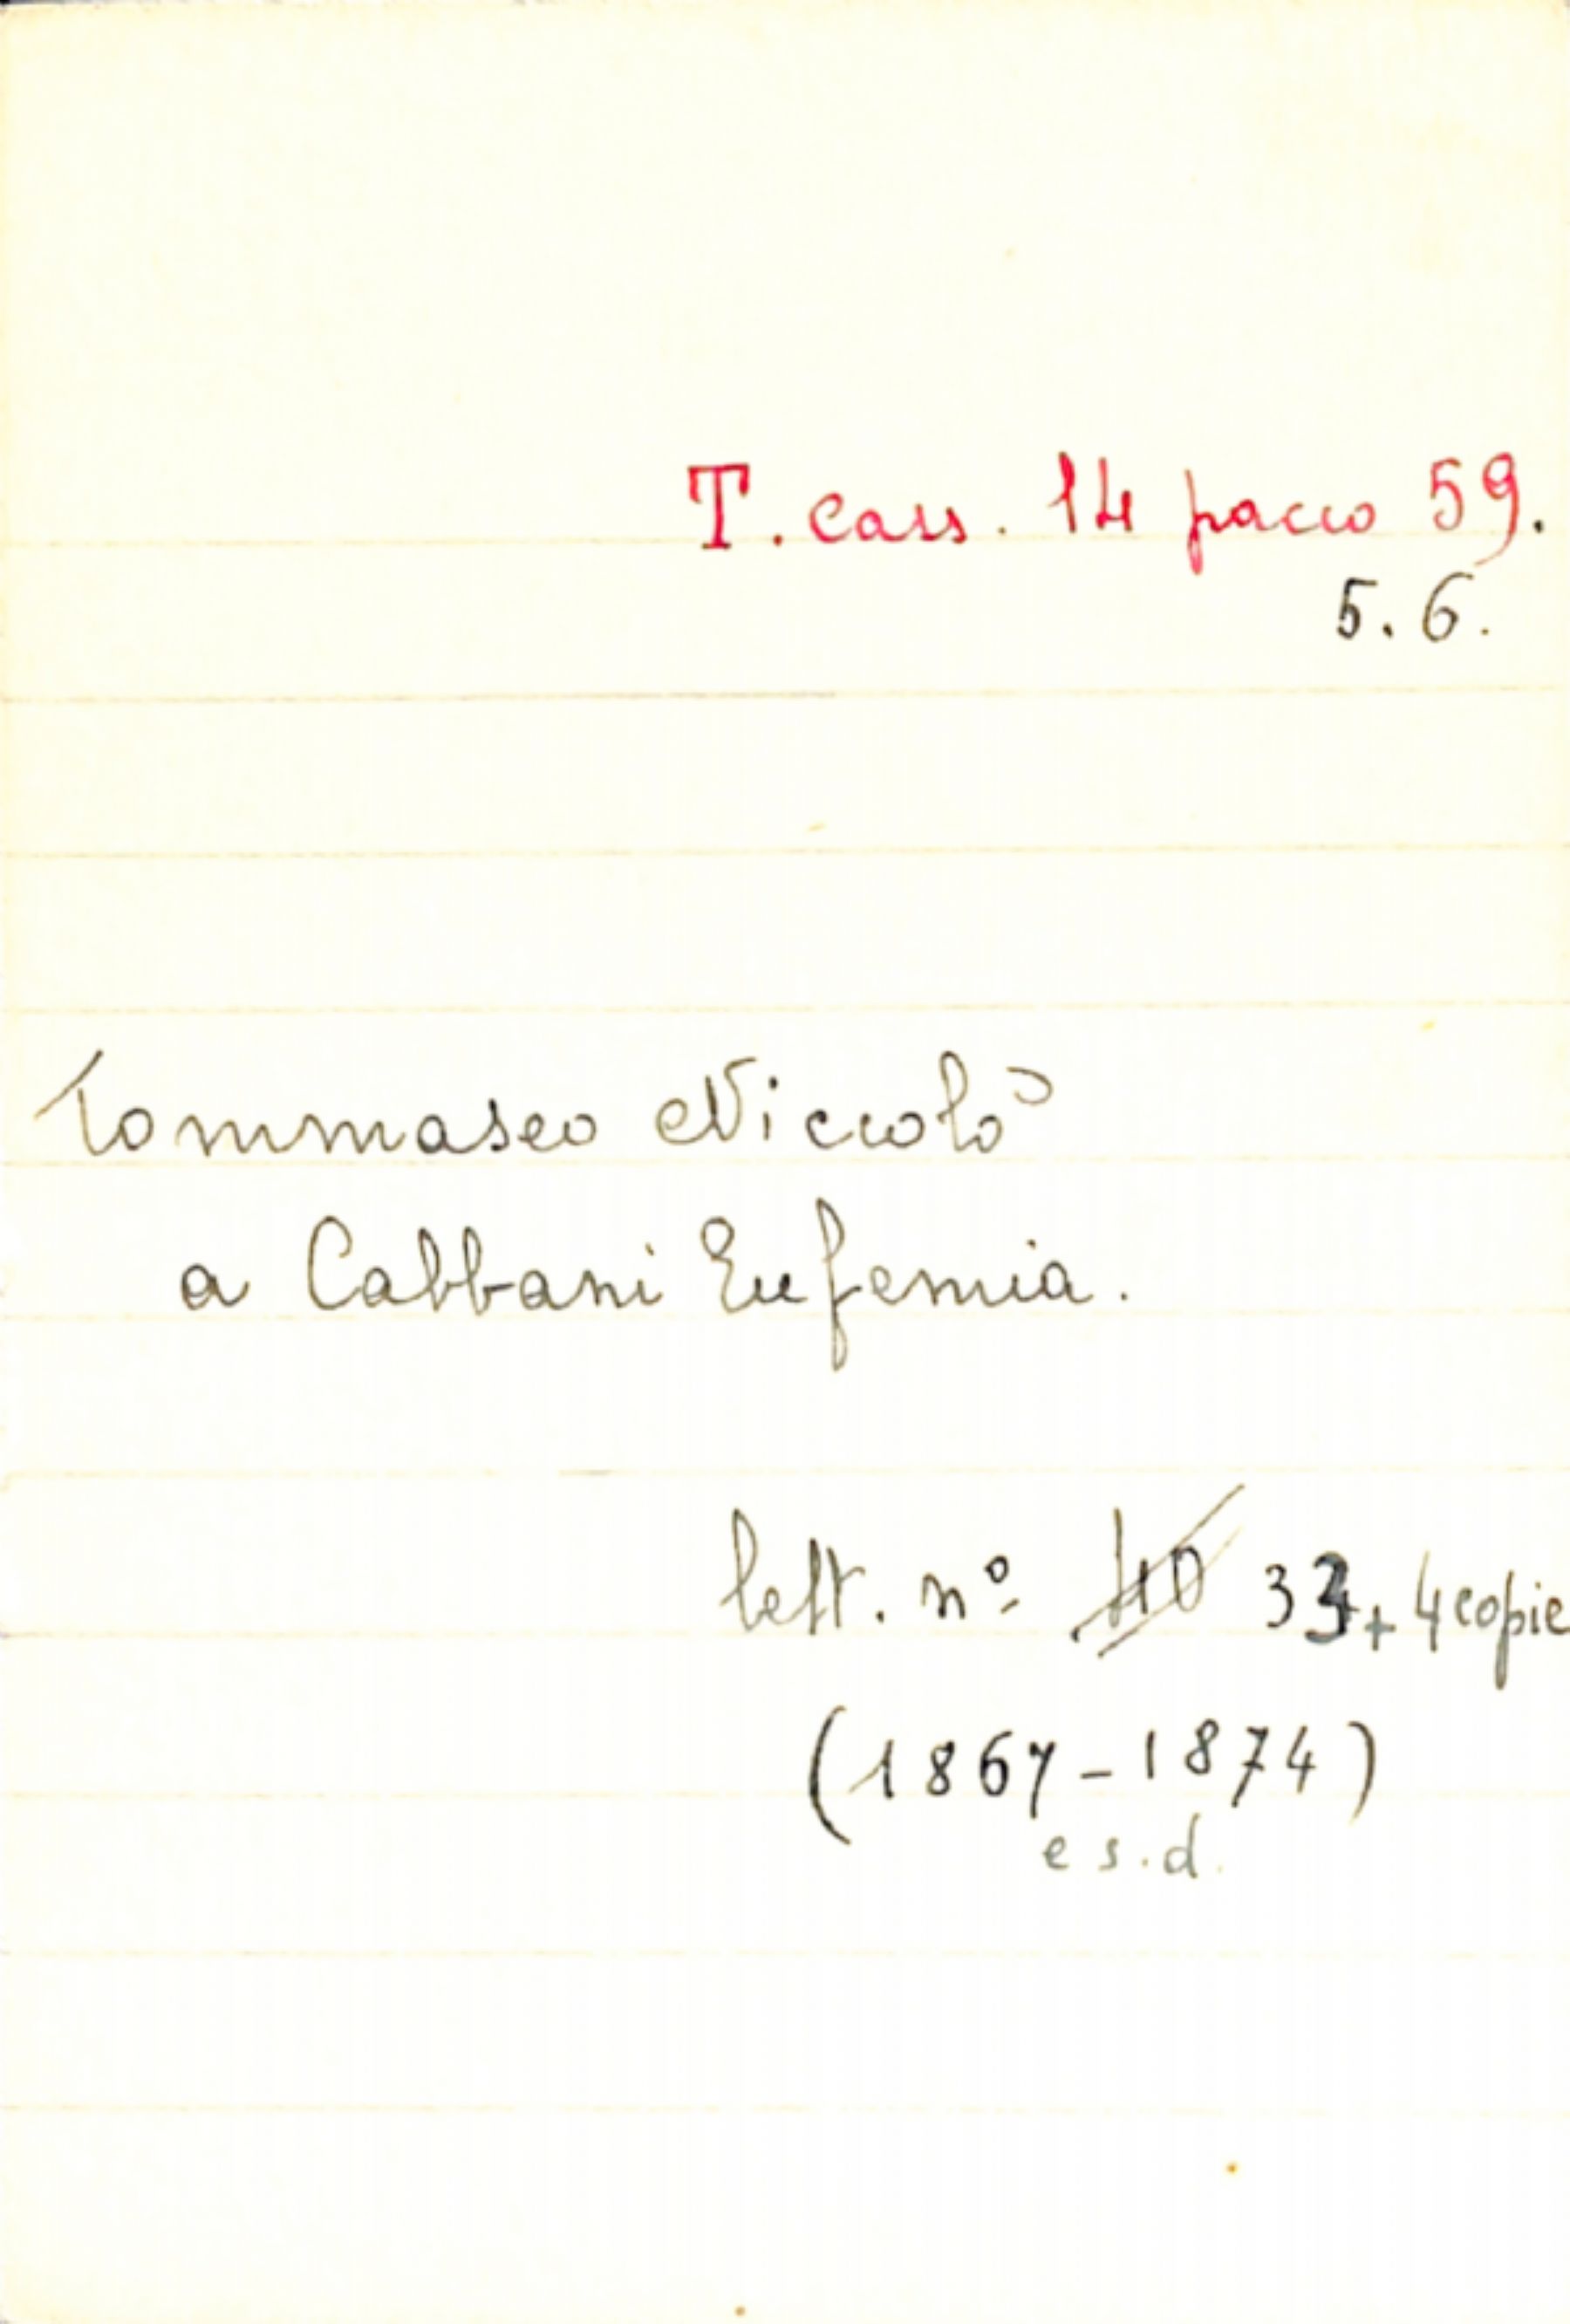 T. cass. 14 pacco 59.
5. 6.
Tommaseo Niccolò
a Cabbani Eufemia.
lett. nº 40 33 + 4 copie
(1867-1874)
e s.d.